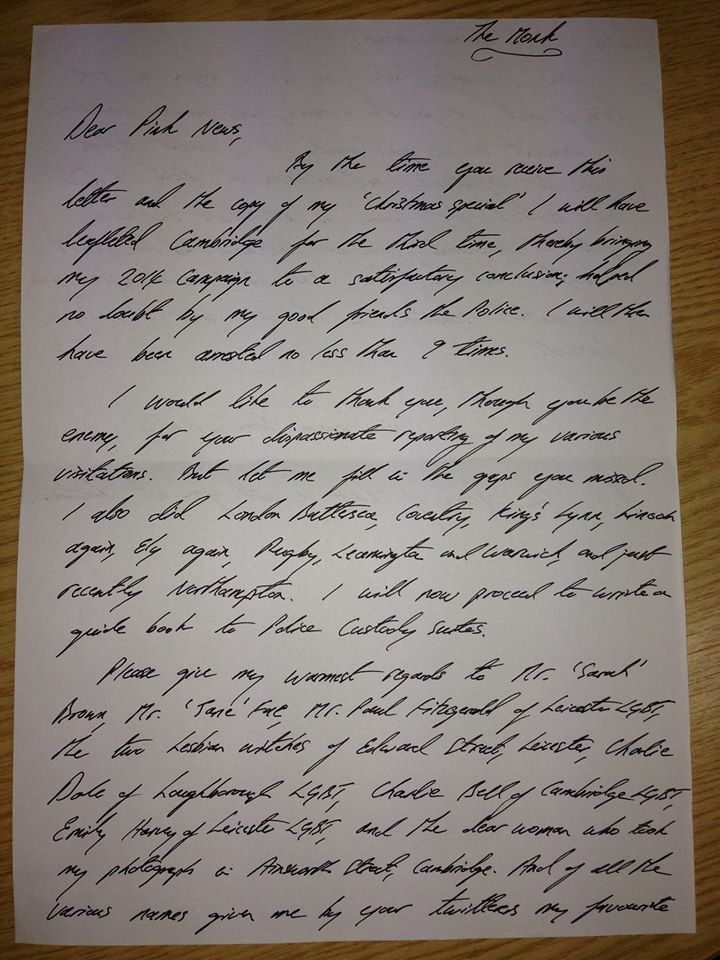 The Monk
Dear Pink News,
By the time you receive this
letter and the copy of my 'Christmas special' I will have
leafleted Cambridge for the third time, thereby bringing
my 2014 campaign to a satisfactory conclusion; helped
no doubt by my good friends the Police. I will then
have been arrested no less than 9 times.
I would like to thank you, though you be the
enemy, for your dispassionate reporting of my various
visitations. But let me fill in the gaps you missed.
I also did London Battersea, Coventry, King's Lynn, Lincoln
again, Ely again, Rugby, Leamington and Warwick, and just
recently Northampton. I will now proceed to write a
guide book to Police Custody suites.
Please give my warmest regards to Mr. 'Sarah'
Brown, Mr. 'Jane' Fae, Mr. Paul Fitzgerald of Leicester LGBT,
the two Lesbian witches of Edward Street, Leicester, Charlie
Dale of Loughborough LGBT, Charlie Bell of Cambridge LGBT,
Emily Harvey of Leicester LGBT, and the dear woman who took
my photograph in Ainsworth Street, Cambridge. And of all the
various names given me by your twitterers my favourite